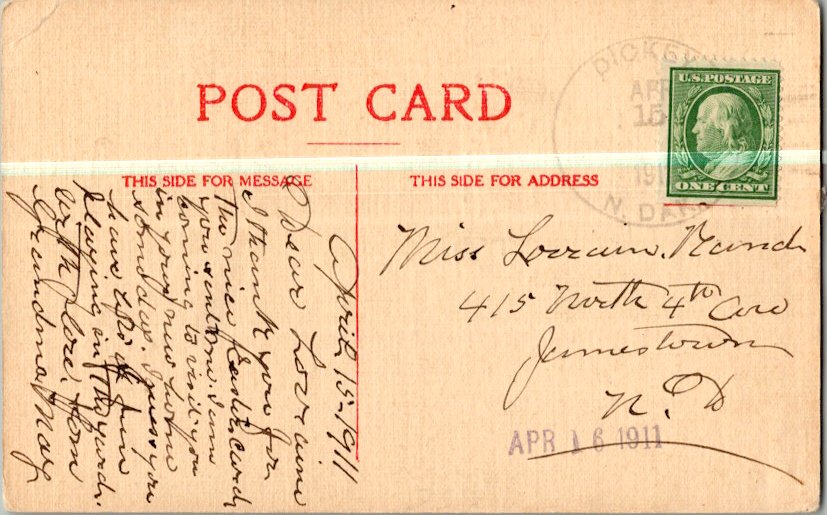 POST CARD
THIS SIDE FOR MESSAGE
THIS SIDE FOR ADDRESS
U.S. POSTAGE
ONE CENT
APR
15
191
N. DAK
April 15-1911
Dear Loraine
I thank you for
The nice Easter card
you sent me. I am
coming to visit you
in your new home
some day. I guess you
have lots of fun
playing in the yard.
with love. from
Grandma May
Miss Lorraine
415 North 4th Ave
Jamestown
N. D
APR 16 1911